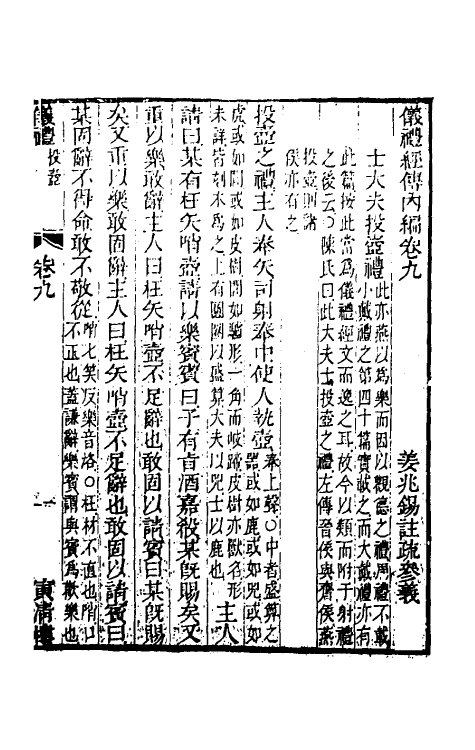 儀禮經傳內編卷九
姜兆錫註疏參義
士大夫投壺禮
此亦燕以爲樂而因以觀德之禮周禮不載
小戴禮之第四十篇實載之而大戴禮亦有
此篇按此當爲儀禮經文而逸之耳故今以類而附于射禮
之後云○陳氏曰此大夫士投壺之禮左傳晉侯與齊侯燕
投壺則諸
侯亦有之
投壺之禮主人奉矢司射奉中使人執壺
奉上聲○中者盛算之
器或如鹿或如兕或如
虎或如閭或如皮樹閭如驢形一角而岐蹄皮樹亦獸名形
未詳皆刻木爲之上有圓圈以盛算大夫以兕士以鹿也
主人
請曰某有枉矢哨壺請以樂賓賓曰子有旨酒嘉殽某旣賜矣又
重以樂敢辭主人曰枉矢哨壺不足辭也敢固以請賓曰某旣賜
矣又重以樂敢固辭主人曰枉矢哨壺不足辭也敢固以請賓曰
某固辭不得命敢不敬從
哨七笑反樂音洛○枉材不直也哨口
不正也蓋謙辭樂賓謂與賓爲歡樂也
儀禮
投壺
卷九
一
寅清樓